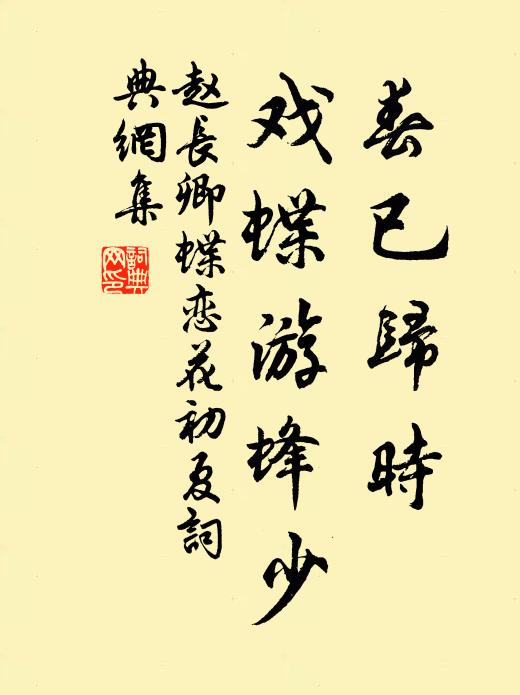 春已歸時
戏蝶游蜂少
赵長卿蝶恋花初夏詞
典網集
詞典网印